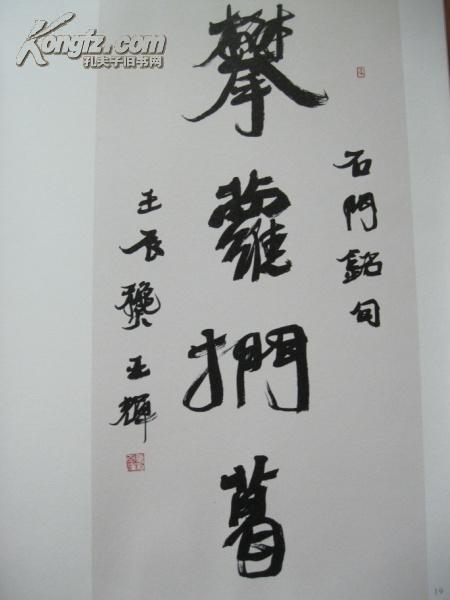 Kongfz.com
孔夫子旧书网
石門銘句
攀蘿捫葛
壬辰龔輝
19